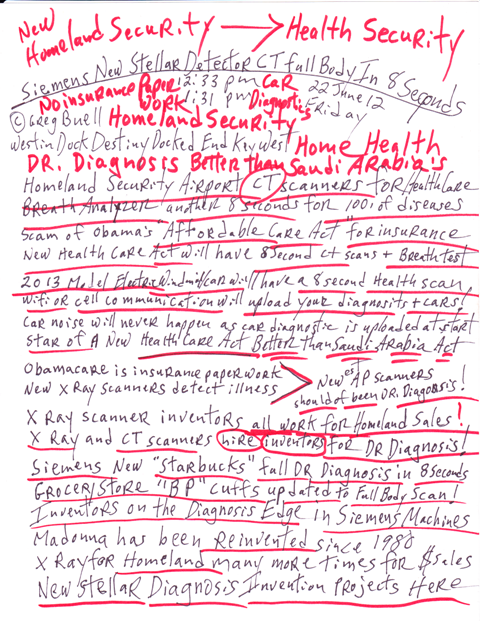 New Homeland Security → Health Security
Siemens New Stellar Detector CT full Body In 8 Seconds
No insurance Paper Work 12:33 pm 1:31 pm Car Diagnostics 22 June 12 Friday
© Greg Buell Homeland Security's
Westin Dock Destiny Docked End Key West Home Health
DR. Diagnosis Better than Saudi Arabia's
Homeland Security Airport CT scanners for Health Care
Breath Analyzer another 8 seconds for 100's of diseases
Scam of Obama's "Affordable Care Act" for insurance
New Health Care Act will have 8 second ct scans + Breath test
2013 Model Electric Windmill car will have a 8 second Health scan,
wifi or cell communication will upload your diagnosits + cars!
Car noise will never happen as car diagnostic is uploaded at start
Star of A New Health Care Act Better than Saudi Arabia Act
Obamacare is insurance paper work
New X Ray scanners detect illness
New est AP scanners
should of been DR. Diagnosis!
X Ray scanner inventors all work for Homeland Sales!
X Ray and CT scanners hire inventors for DR Diagnosis!
Siemens New "Starbucks" full DR Diagnosis in 8 seconds
Grocery Store "BP" cuffs updated to Full Body Scan!
Inventors on the Diagnosis Edge in Siemens Machines
Madonna has been reinvented since 1980
X Ray for Homeland many more times for $sales
New Stellar Diagnosis Invention Projects Here